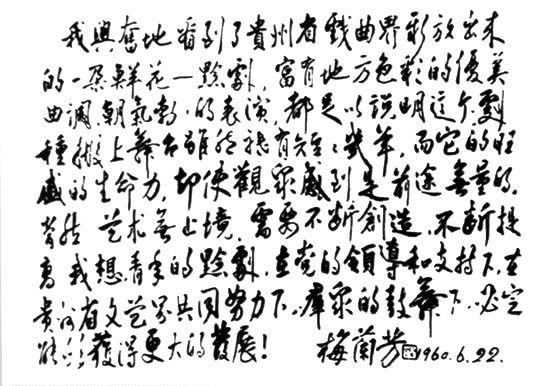 我興奮地看到了貴州省戲曲界新放出來
的一朵鮮花—黔劇,富有地方色彩的優美
曲調,朝氣勃勃的表演,都足以說明這个劇
種搬上舞台雖然祗有短短幾年,而它的旺
盛的生命力,却使觀眾感到是前途無量的。
當然艺术無止境,需要不断創造,不断提
高,我想青年的黔劇,在党的領導和支持下,在
貴州省文艺界共同努力下,羣眾的鼓舞下,必定
能够獲得更大的發展!
梅蘭芳 1960.6.22.